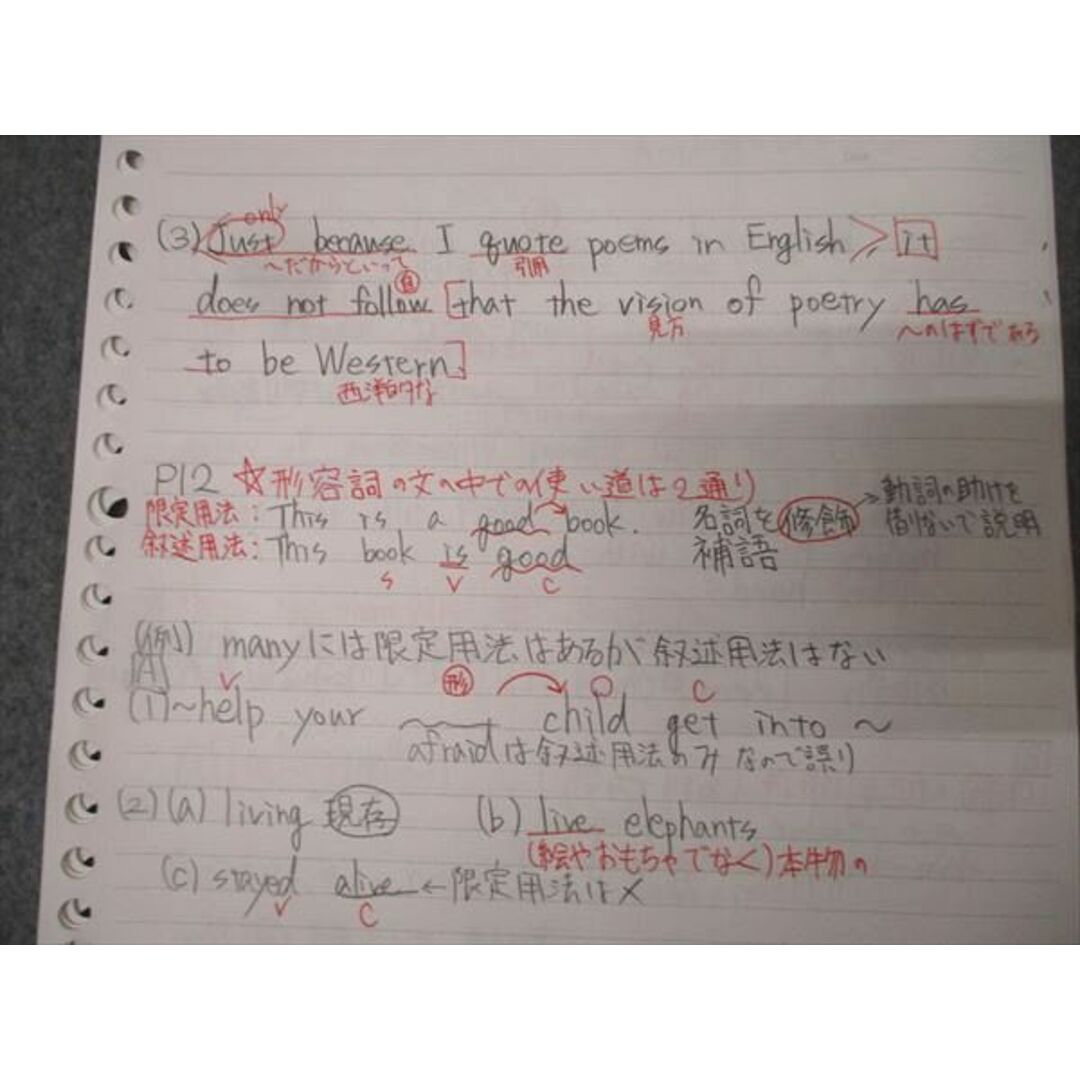 only
(3) Just because I quote poems in English > it
～だからといって 引用
does not follow [that the vision of poetry has
見方 ～のはずである
to be Western]
西洋的な
P12 ☆形容詞の文の中での使い道は2通り
限定用法: This is a good book. 名詞を修飾 → 動詞の助けを借りないで説明
叙述用法: This book is good 補語
S V C
(例) manyには限定用法はあるが叙述用法はない
[A] V 形 O C
(1)～help your ___ child get into ～
afraidは叙述用法のみなので誤り
(2)(a) living 現存 (b) live elephants
(絵やおもちゃでなく)本物の
(c) stayed alive ←限定用法は×
V C